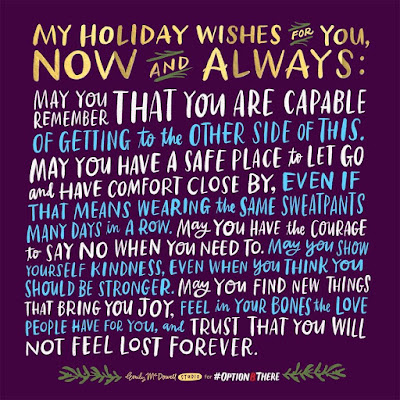 MY HOLIDAY WISHES FOR YOU,
NOW AND ALWAYS:
MAY YOU REMEMBER THAT YOU ARE CAPABLE
OF GETTING to the OTHER SIDE OF THIS.
MAY YOU HAVE A SAFE PLACE to LET GO
and HAVE COMFORT CLOSE BY, EVEN IF
THAT MEANS WEARING the SAME SWEATPANTS
MANY DAYS in A ROW. MAY YOU HAVE the COURAGE
to SAY NO WHEN YOU NEED TO. MAY YOU SHOW
YOURSELF KINDNESS, EVEN WHEN YOU THINK YOU
SHOULD BE STRONGER. MAY YOU FIND NEW THINGS
THAT BRING YOU JOY, FEEL in YOUR BONES the LOVE
PEOPLE HAVE FOR YOU, and TRUST THAT YOU WILL
NOT FEEL LOST FOREVER.
Emily McDowell STUDIO for #OPTIONBTHERE